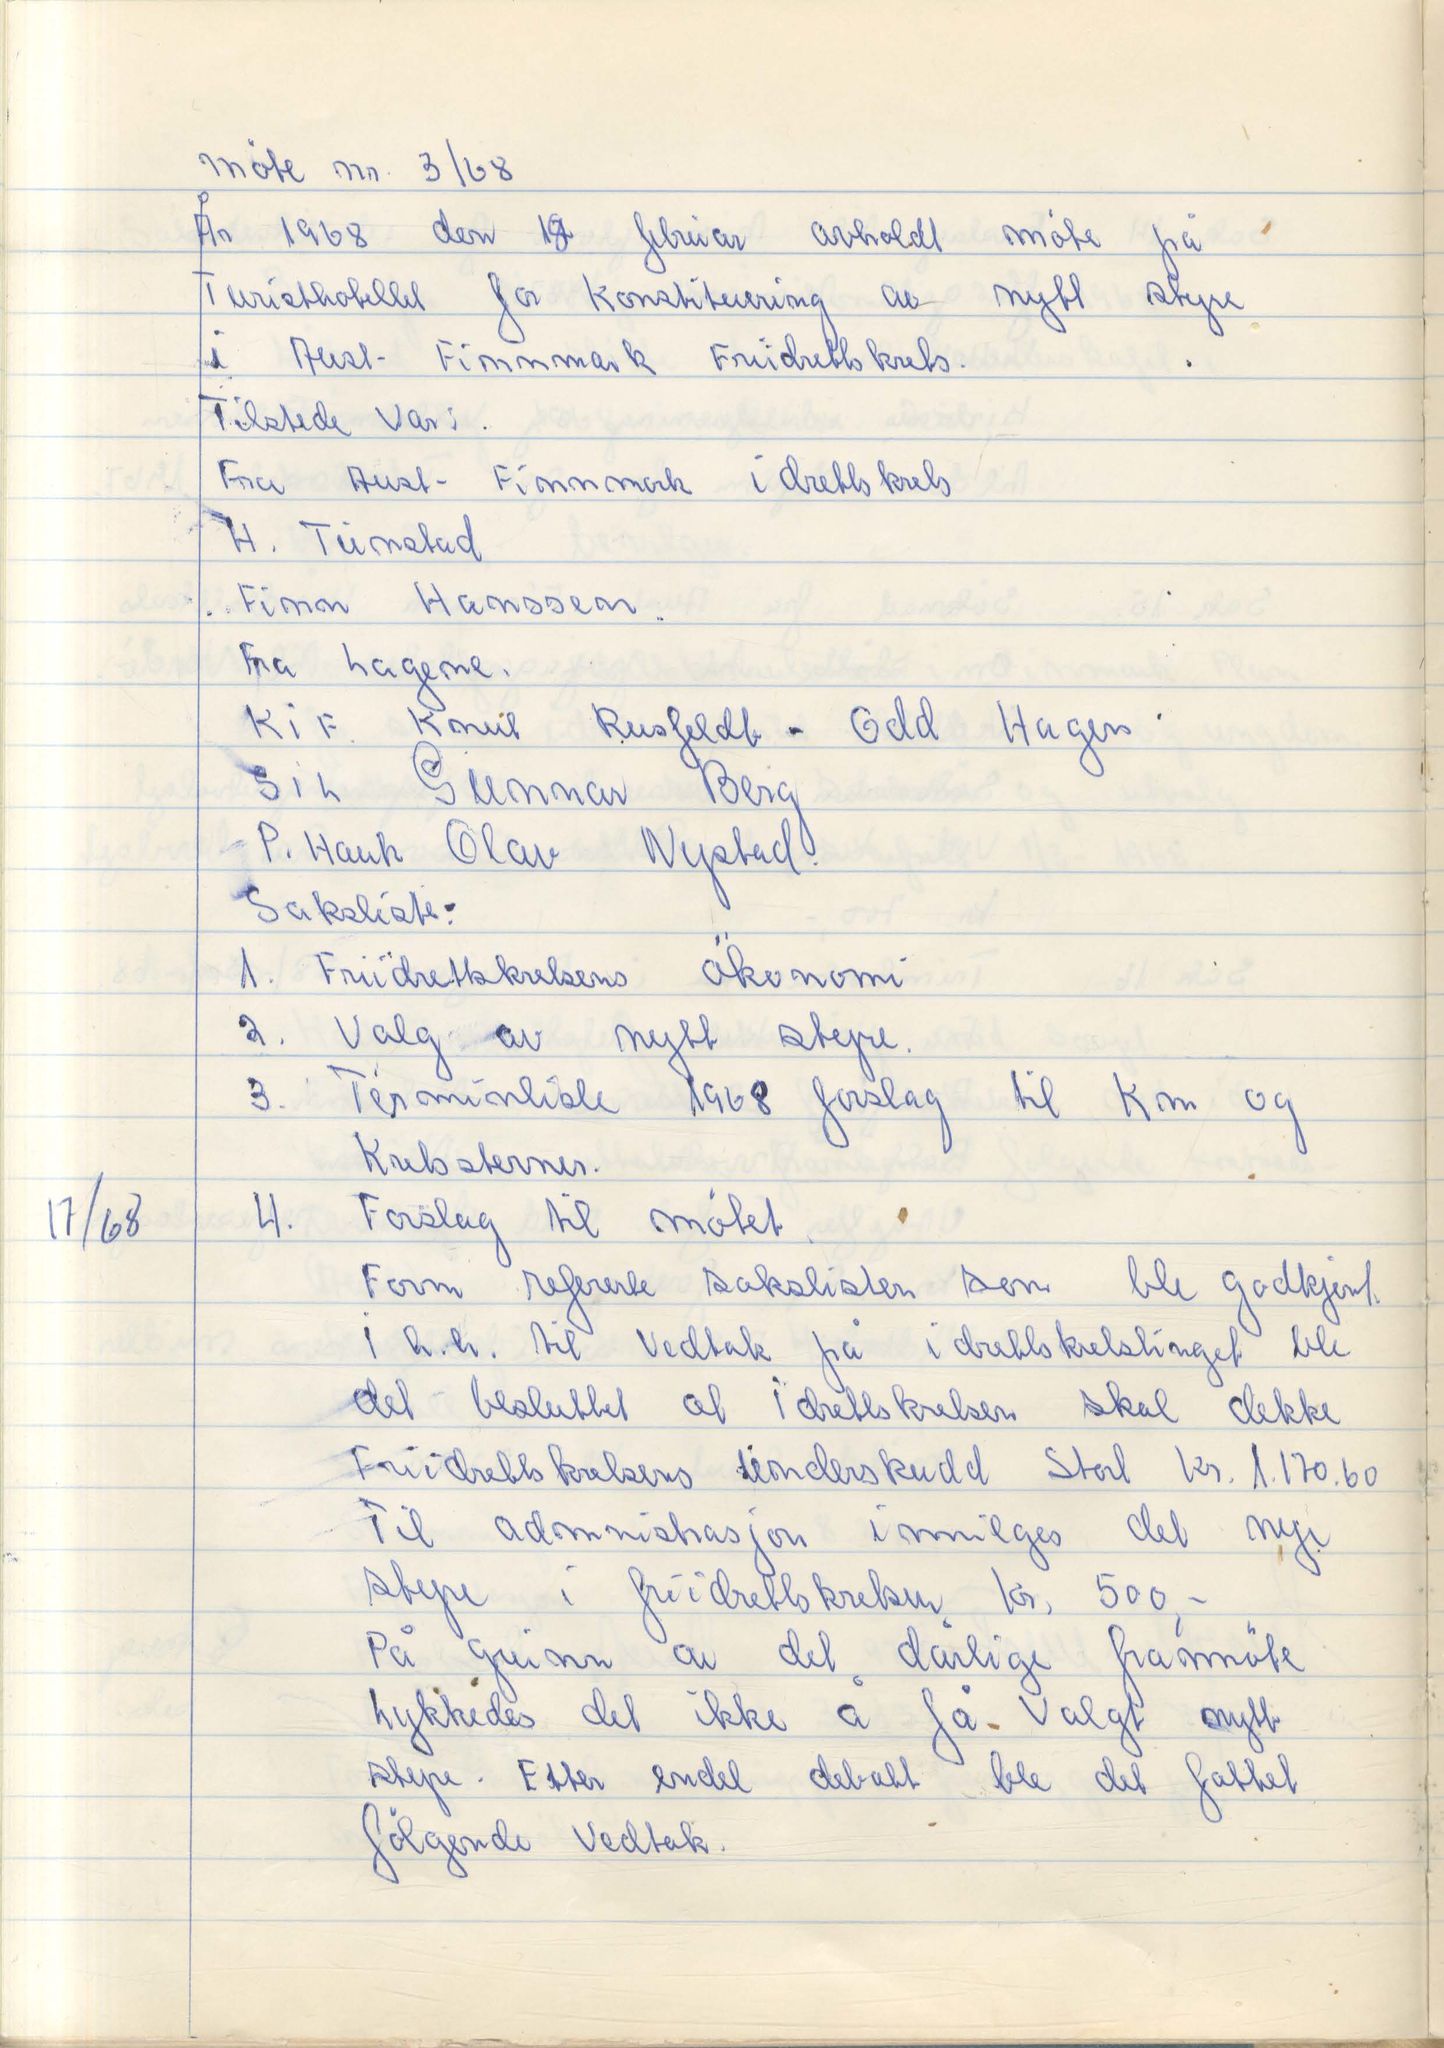 Möte nr. 3/68
År 1968 den februar avholdt möte på
Turisthotellet for Konstituering av nytt styre
i Aust- Finnmark Friidrettskrets.
Tilstede Var:
Fra Aust- Finnmark idrettskrets
H. Tunstad
Finn Hanssen.
Fra Lagene.
KiF. Knut Rusfeldt - Odd Hagen
Sih Gunnar Berg
P. Hauk Olav Nystad.
Saksliste:
1. Friidrettskretsens Ökonomi
2. Valg av nytt styre.
3. Terminliste 1968 forslag til Km og
Kretsstevner.
17/68 4. Forslag til mötet.
Form refererte sakslisten som ble godkjent.
I h.h. til Vedtak på idrettskretstinget ble
det besluttet at Idrettskretsen skal dekke
Friidrettskretsens underskudd Stort kr. 1.170.60
Til admnistrasjon innvilges det nye
styre i friidrettskretsen kr. 500,-
På grunn av det dårlige framöte
Lykkedes det ikke å få Valgt nytt
styre. Etter endel debatt ble det fattet
fölgende Vedtak.